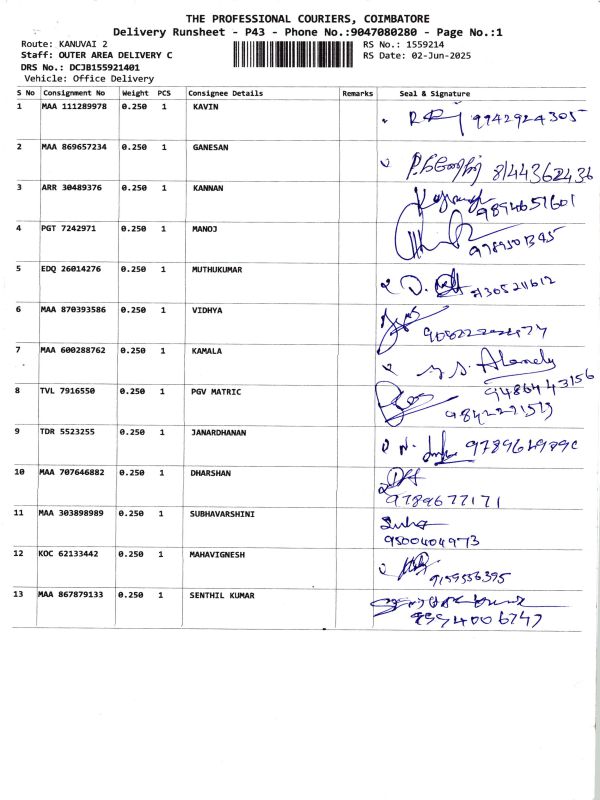 THE PROFESSIONAL COURIERS, COIMBATORE
Delivery Runsheet - P43 - Phone No.:9047080280 - Page No.:1
Route: KANUVAI 2 RS No.: 1559214
Staff: OUTER AREA DELIVERY C RS Date: 02-Jun-2025
DRS No.: DCJB155921401
Vehicle: Office Delivery
S No Consignment No Weight PCS Consignee Details Remarks Seal & Signature
1 MAA 111289978 0.250 1 KAVIN 9942924305
2 MAA 869657234 0.250 1 GANESAN 8144362436
3 ARR 30489376 0.250 1 KANNAN 9894651601
4 PGT 7242971 0.250 1 MANOJ 9789501345
5 EDQ 26014276 0.250 1 MUTHUKUMAR D.
6 MAA 870393586 0.250 1 VIDHYA
7 MAA 600288762 0.250 1 KAMALA
9486443156
8 TVL 7916550 0.250 1 PGV MATRIC
9842221513
9 TDR 5523255 0.250 1 JANARDHANAN N.
10 MAA 707646882 0.250 1 DHARSHAN
9789677171
11 MAA 303898989 0.250 1 SUBHAVARSHINI Subha
9500404973
12 KOC 62133442 0.250 1 MAHAVIGNESH
9159556395
13 MAA 867879133 0.250 1 SENTHIL KUMAR